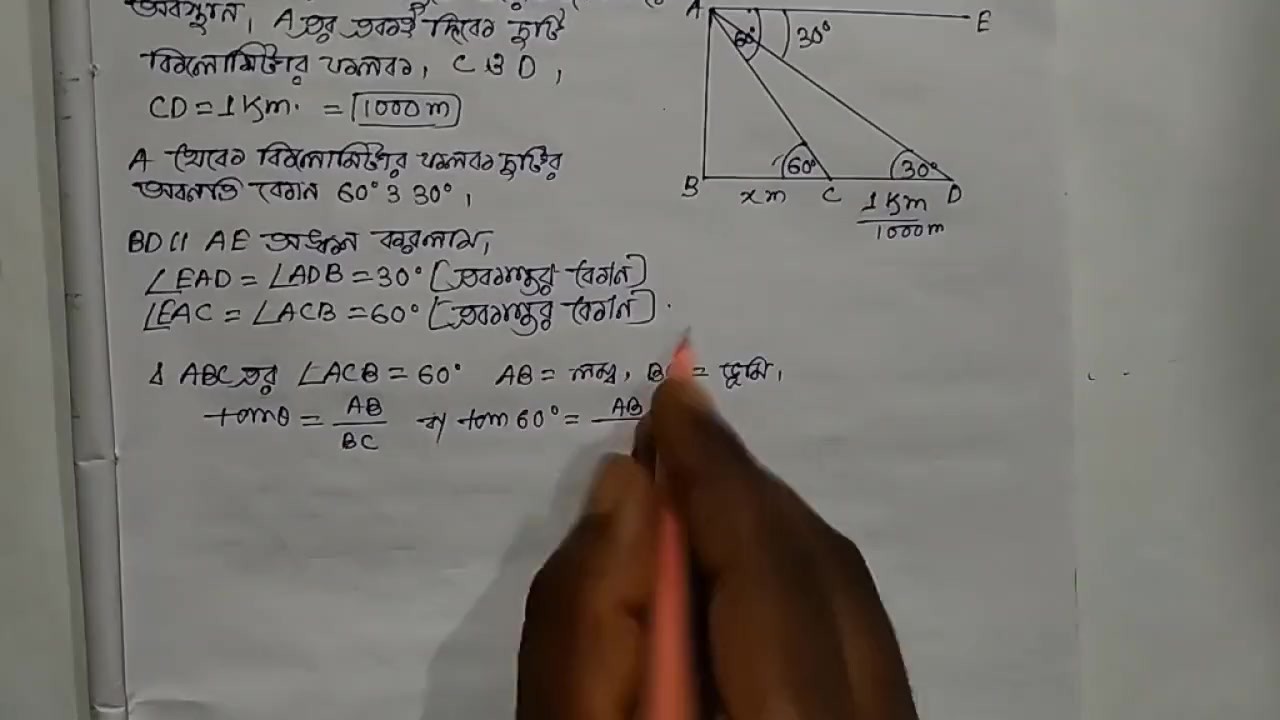 অবস্থান, A এর একই দিকের দুটি
কিলোমিটার ফলক, C ও D,
CD = 1 Km. = 1000 m
A থেকে কিলোমিটার ফলক দুটির
অবনতি কোন 60° ও 30°,
BD || AE অঙ্কন করলাম,
∠EAD = ∠ADB = 30° [একান্তর কোন]
∠EAC = ∠ACB = 60° [একান্তর কোন]
Δ ABC এর ∠ACB = 60° AB = লম্ব, BC = ভূমি,
tanθ = AB/BC বা, tan 60° = AB
A E
60° 30°
60° 30°
B x m C 1 Km D
1000 m